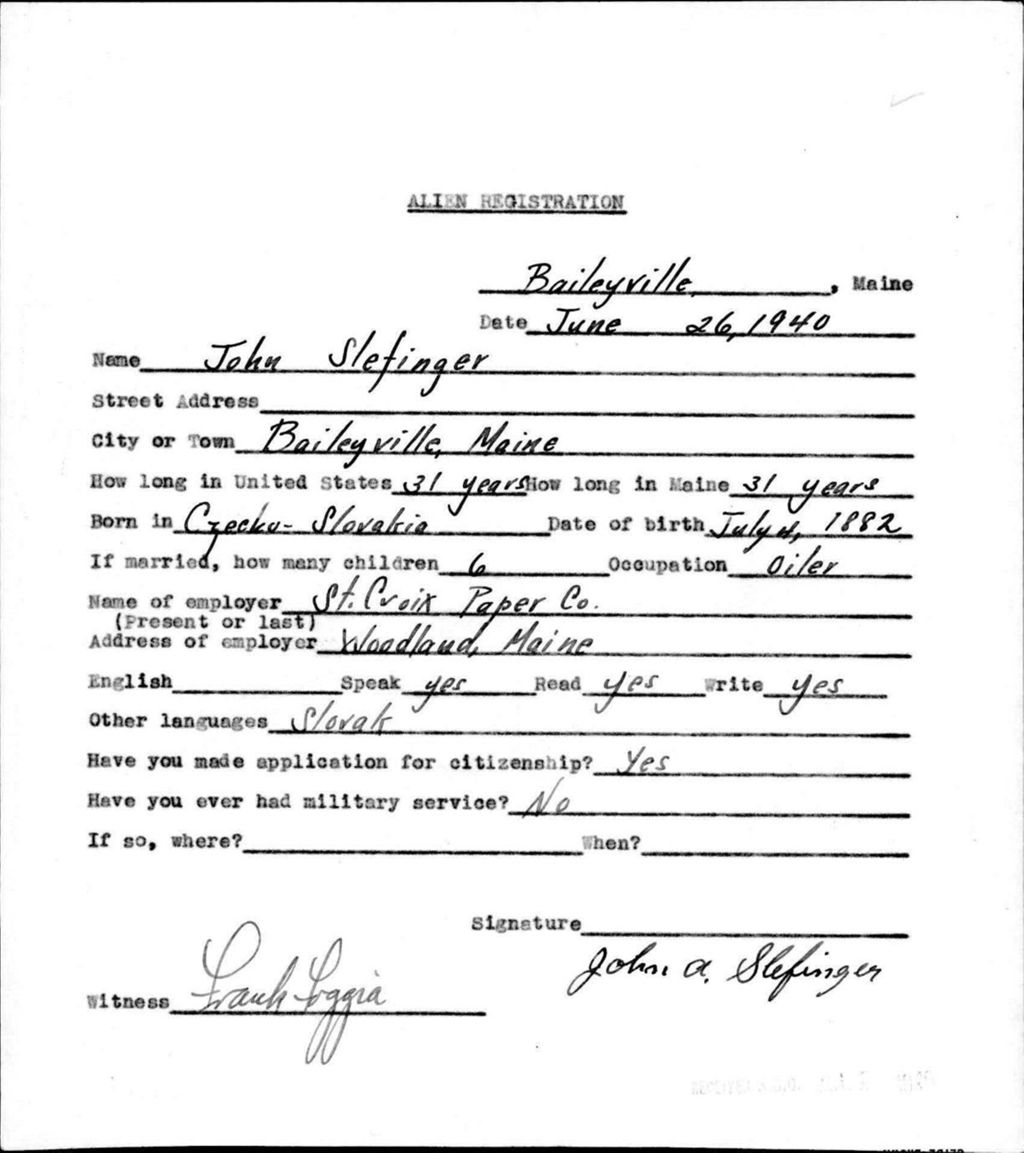 ALIEN REGISTRATION
Baileyville, , Maine
Date June 26, 1940
Name John Slefinger
Street Address
City or Town Baileyville, Maine
How long in United States 31 years How long in Maine 31 years
Born in Czecko-Slovakia Date of birth July 1882
If married, how many children 6 Occupation Oiler
Name of employer St. Croix Paper Co.
(Present or last)
Address of employer Woodland, Maine
English Speak yes Read yes Write yes
Other languages Slovak
Have you made application for citizenship? Yes
Have you ever had military service? No
If so, where? When?
Signature
John A. Slefinger
Witness Frank Loggia